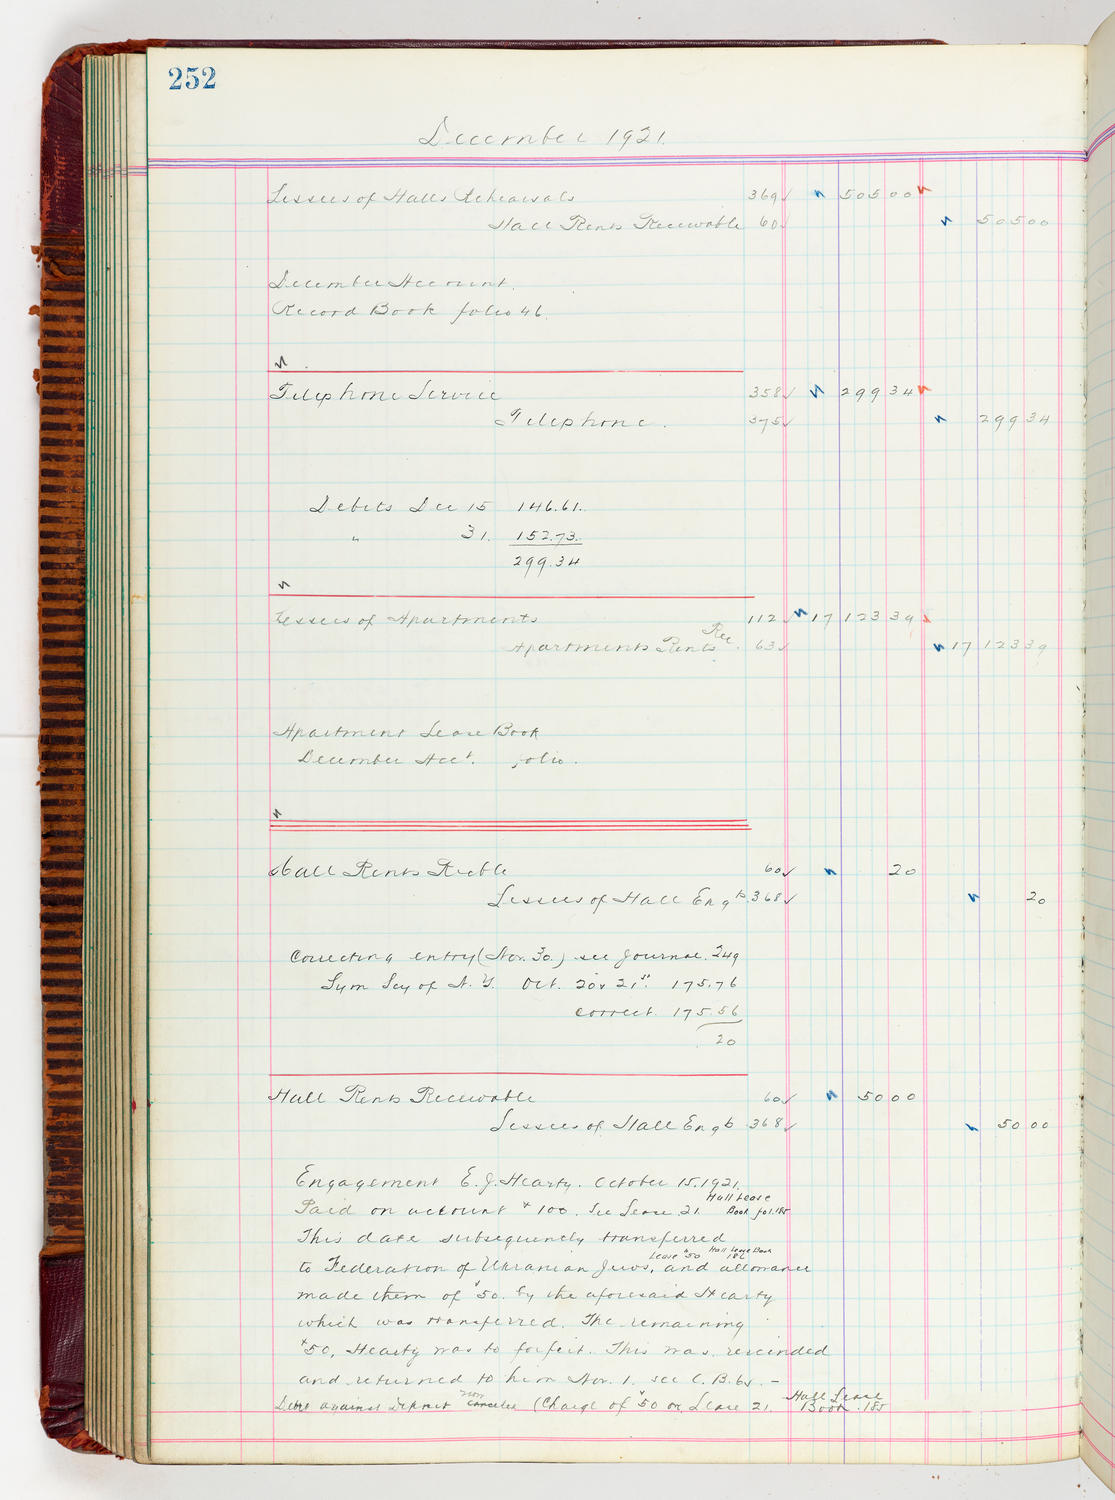 252
December 1921.
Lessees of Halls Rehearsals 369 505 00
Hall Rents Receivable 60 505 00
December Account.
Record Book folio 46.
Telephone Service 358 299 34
Telephone. 375 299 34
Debits Dec 15 146.61.
" 31. 152.73.
299.34
Lessees of Apartments 112 17 123 39
Apartments Rents Rec. 63 17 123 39
Apartment Lease Book
December Acct. folio.
Hall Rents Rec'ble 60 20
Lessees of Hall Eng'ts 368 20
Correcting entry (Nov. 30.) see Journal. 249
Sym Soy of N. Y. Oct. 20 & 21st. 175.76
correct. 175.56
.20
Hall Rents Receivable 60 50 00
Lessees of Hall Engts 368 50 00
Engagement E. J. Hearty. October 15. 1921.
Paid on account $100. See Lease 21. Hall Lease Book fol. 185
This date subsequently transferred
to Federation of Ukranian Jews, Lease $50 Hall Lease Book and allowance
made them of $50. by the aforesaid Hearty
which was transferred. The remaining
$50, Hearty was to forfeit. This was rescinded
and returned to him Nov. 1. see C. B. 65. -
against Deposit now canceled (Charge of $50 on Lease 21. Hall Lease Book. 185